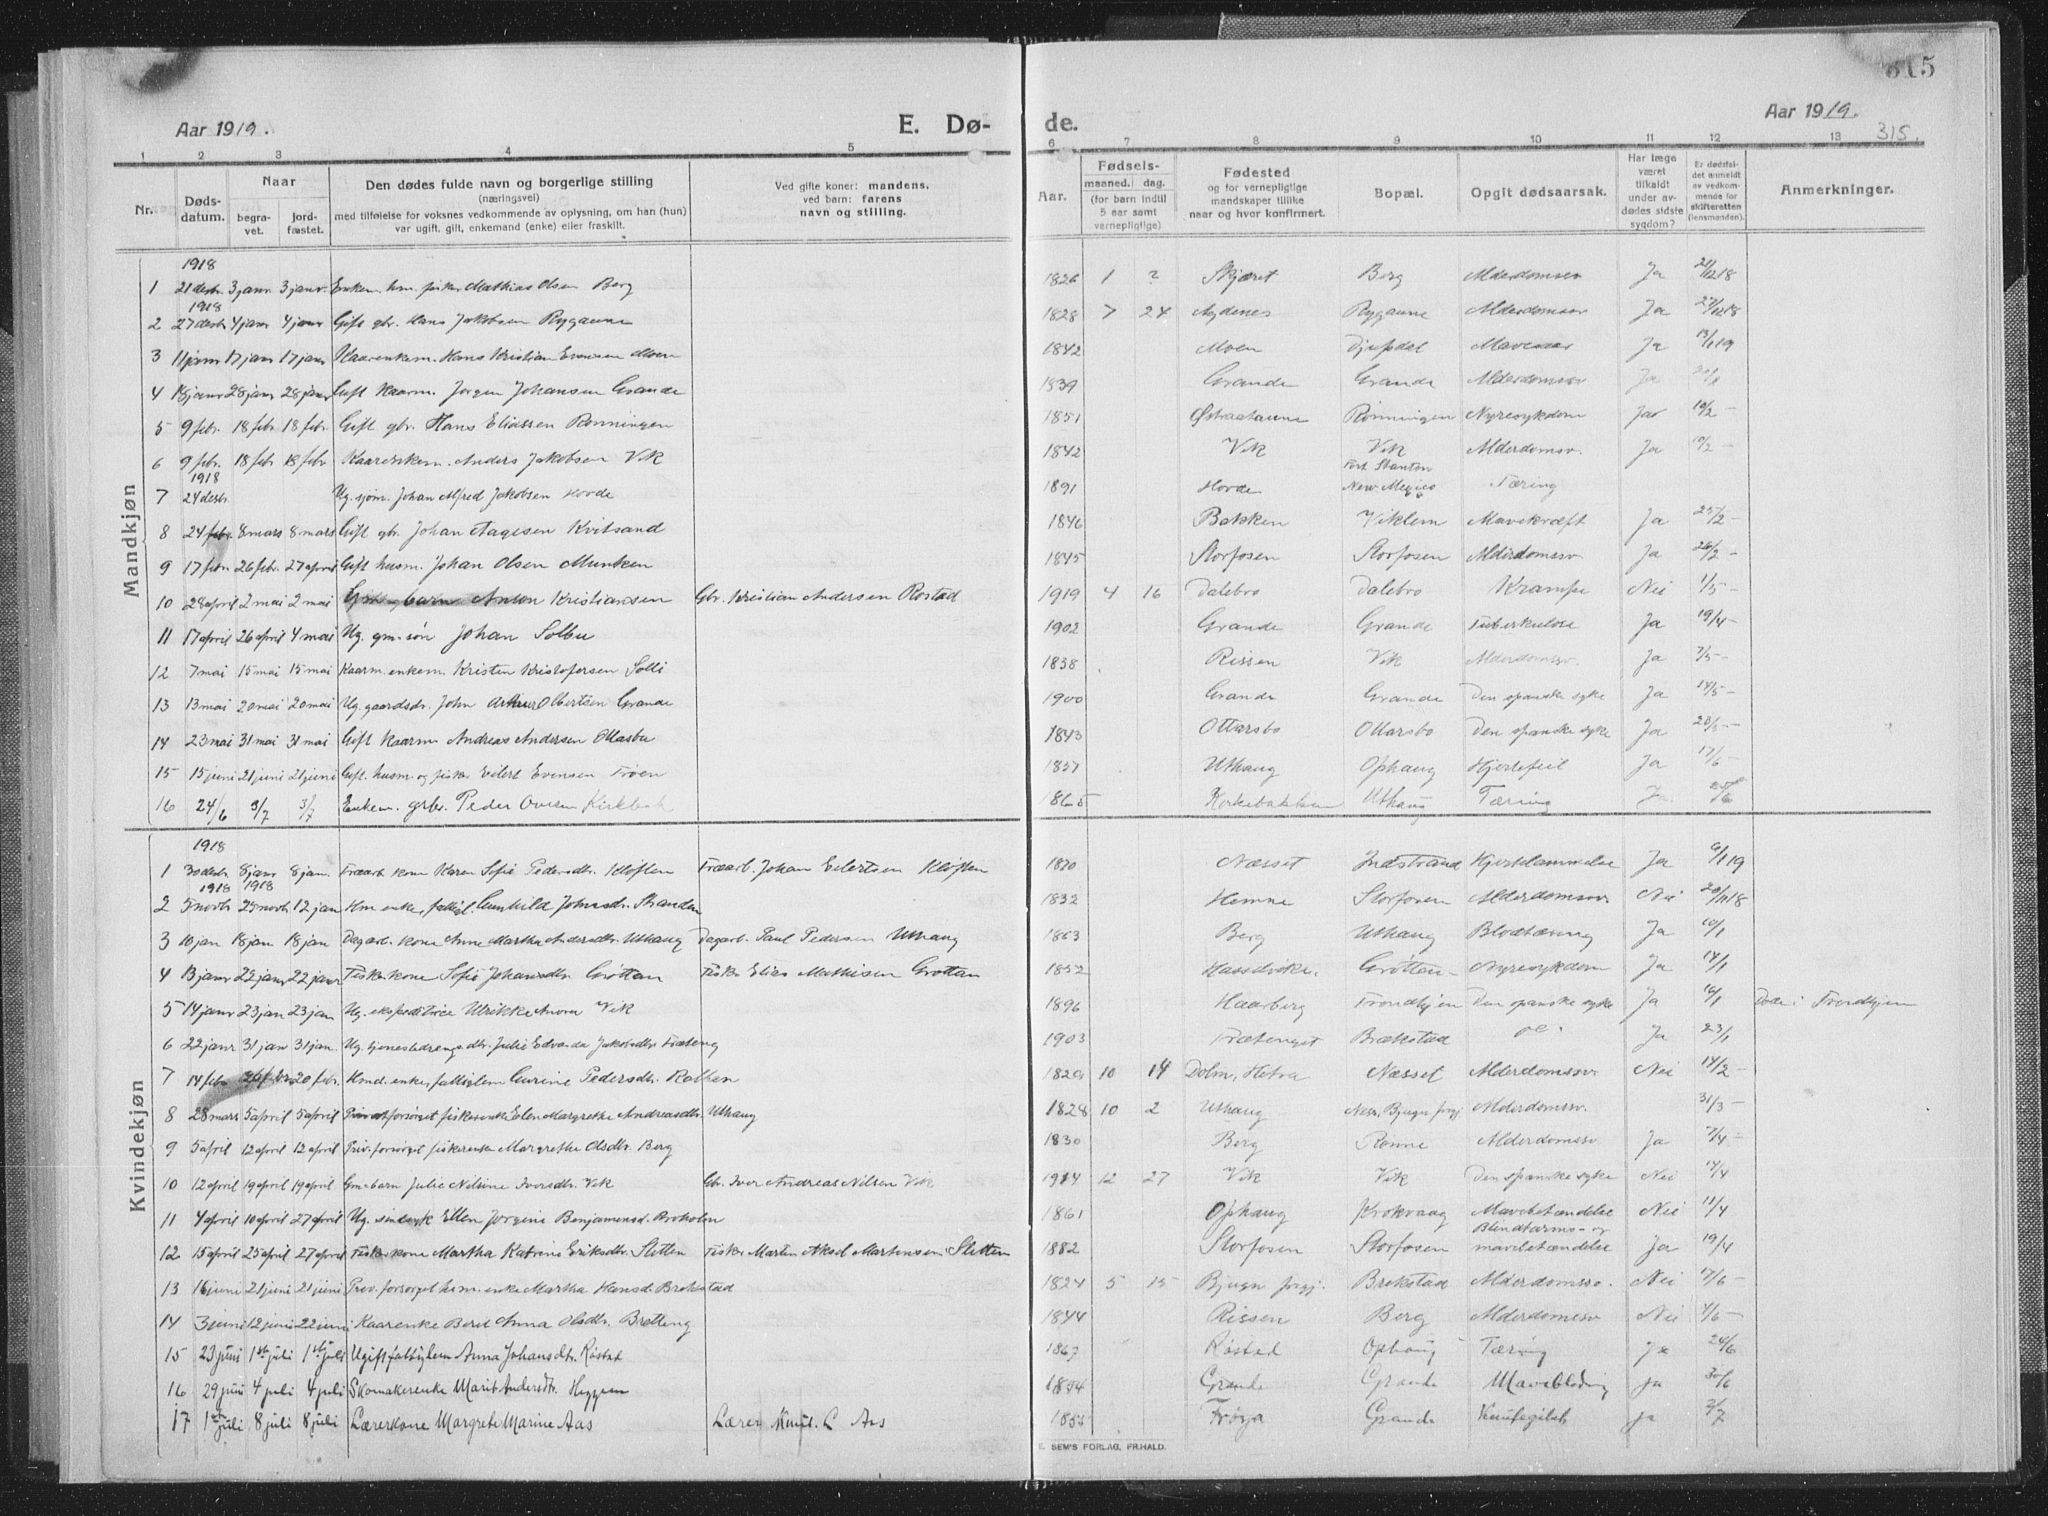 Aar 1919.
E. Dø-
1 2 3 4 5
Nr. Døds-datum. Naar begra-vet. jord-fæstet. Den dødes fulde navn og borgerlige stilling (næringsvei) med tilføielse for voksnes vedkommende av oplysning, om han (hun) var ugift, gift, enkemand (enke) eller fraskilt. Ved gifte koner: mandens, ved barn: farens navn og stilling.
Mandkjøn
1918
1 21 desbr. 3 janr. 3 janr. Enkem. hm. fisker Mathias Olsen Berg
1918
2 27 desbr 4 janr 4 janr Gift gbr. Hans Jakobsen Rygaune
3 11 janr 17 janr 17 janr Kaarenkem. Hans Kristian Evensen Moen
4 18 janr 28 janr 28 janr Gift Kaarm. Jørgen Johansen Grande
5 9 febr. 18 febr. 18 febr. Gift gbr. Hans Eliassen Rønningen
6 9 febr. 18 febr 18 febr Kaarenkem. Anders Jakobsen Vik
1918
7 24 desbr. Ug. sjøm. Johan Alfred Jakobsen Hovde
8 24 febr. 8 mars 8 mars Gift gbr. Johan Aagesen Kvitsand
9 17 febr 26 febr. 27 april Gift husm. Johan Olsen Munken
10 28 april 2 mai 2 mai barn Anton Kristiansen Gbr. Kristian Andersen Rostad
11 17 april 26 april 4 mai Ug. gm. søn Johan Solbu
12 7 mai 15 mai 15 mai Kaarm. enkem. Kristen Kristofersen Solli
13 13 mai 20 mai 20 mai Ug. gaardsdr. John Arthur Olbertsen Grande
14 23 mai 31 mai 31 mai Gift Kaarm Andreas Andersen Ottasbu
15 15 juni 21 juni 21 juni Gift. husm. og fisker Eilert Evensen Frøen
16 24/6 3/7 3/7 Enkem. grbr. Peder Ovesen Kirkbak
Kvindekjøn
1918
1 30 desbr. 8 janr 8 jan. Træarb. kone Karen Sofie Pedersdtr. Kløften Træarb. Johan Eilertsen Kløften
1918 1918
2 5 novbr 25 novbr. 12 jan Hm. enke, fattigl. Gunhild Johnsdtr. Stranden
3 10 jan 18 jan 18 jan Dagarb. kone Anne Martha Andersdtr. Uthaug Dagarb. Paul Pedersen Uthaug
4 13 janr 22 janr 22 janr Fisker kone Sofie Johansdtr. Grøtten Fisker Elias Mathisen Grøttan
5 14 janr 23 jan 23 jan Ug. ekspeditrice Ulrikke Anora Vik
6 22 janr 31 jan 31 jan. Ug. tjenestedreng. dtr. Julie Edvarda Jakobsdtr. Fræteng
7 14 febr 26 febr. 20 febr. Hmd. enke, fattiglem Gurine Pedersdtr. Rathen
8 28 mars 5 april 5 april Privatforsørget fiskerenke Elen Margrethe Andreasdtr. Uthaug
9 5 april 12 april 12 april Priv. forsørget fiskerenke Margrethe Olsdtr. Berg
10 12 april 19 april 19 april Gm. barn Julie Nilsine Iversdtr. Vik Gbr. Iver Andreas Nilsen Vik
11 4 april 10 april 27 april Ug. sindsyk Ellen Jørgine Benjaminsd. Broholm
12 15 april 25 april 27 april Fisker kone Martha Katrine Eriksdtr. Sletten Fisker Morten Aksel Mortensen Sletten
13 16 juni 21 juni 21 juni Priv. forsørget hm. enke Martha Hansd. Brekstad
14 3 juni 12 juni 22 juni Kaarenke Berit Anna Olsdtr. Bretting
15 23 juni 1ste juli 1ste juli Ugift fattiglem Anna Johansdtr. Røstad
16 29 juni 4 juli 4 juli Skomakerenke Marit Andersdtr. Heggem
17 1ste juli 8 juli 8 juli Lærerkone Margrete Marine Aas Lærer Knut L Aas
315
de.
Aar 1919.
315.
6 7 8 9 10 11 12 13
Aar. Fødsels- maaned. dag. (for barn indtil 5 aar samt vernepligtige) Fødested og for vernepligtige mandskaper tillike naar og hvor konfirmert. Bopæl. Opgit dødsaarsak. Har læge været tilkaldt under av-dødes sidste sygdom? Er dødsfal-det anmeldt av vedkom-mende for skifteretten (lensmanden). Anmerkninger.
1826 1 ? Skjæret Berg Alderdomssv Ja 21/12 18
1828 7 24 Agdenes Rygaune Alderdomssv Ja 27/12 18
1842 Moen Djupdal Mavesaar Ja 13/1 19
1839 Grande Grande Alderdomssv Ja
1851 Østraataune Rønningen Nyresykdom Ja 10/2 -
1842 Vik Vik Alderdomsv. Ja 10/2 -
1891 Hovde Fort Stanton New Mexico Tæring
1846 Bakken Viklem Mavekræft Ja 25/2 -
1845 Storfosen Storfosen Alderdomssv Ja 26/2 -
1919 4 16 Dalebro Dalebro Krampe Nei 1/5 -
1902 Grande Grande Tuberkulose Ja 19/4 -
1838 Rissen Vik Alderdomssv. Ja 7/5 -
1900 Grande Grande Den spanske syke Ja 14/5 -
1843 Ottarsbo Ottarsbo Den spanske syke Ja 28/5 -
1857 Uthaug Ophaug Hjertefeil Ja 17/6 -
1865 Kirkebakken Uthaug Tæring Ja 25/6
1870 Næsset Indstrand Hjertelammelse Ja 6/1 19
1832 Hemne Storfosen Alderdomssv Nei 20/11 18
1863 Berg Uthaug Blodtæring Ja 10/1
1852 Grøtten Nyresykdom Ja 14/1
1896 Haarberg Trondhjem Den spanske syke Ja 16/1 Døde i Trondhjem
1903 Frætenget Brækstad Ja 23/1
1829 10 14 Dolm, Hitra Næsset Alderdomssv Nei 14/2 -
1828 10 2 Uthaug Nes, Bjugn prgj. Alderdomssv. 31/3 -
1830 Berg Rønne Alderdomssv Ja 7/4 -
1914 12 27 Vik Vik Den spanske syke Nei 14/4
1861 Ophaug Krokvaag Mavebetændelse Nei 11/4
1882 Storfosen Storfosen Blindtarms- og mavebetændelse Ja 19/4
1824 5 15 Bjugn prgj. Brekstad Alderdomssv. Nei 17/6 -
1844 Rissen Berg Alderdomssv Nei 4/6 -
1867 Røstad Ophaug Tæring Ja 24/6
1854 Grande Grande Maveblødning Ja 30/6
1855 Frøya Grande Ja 2/7
E. SEM'S FORLAG, FR.HALD.